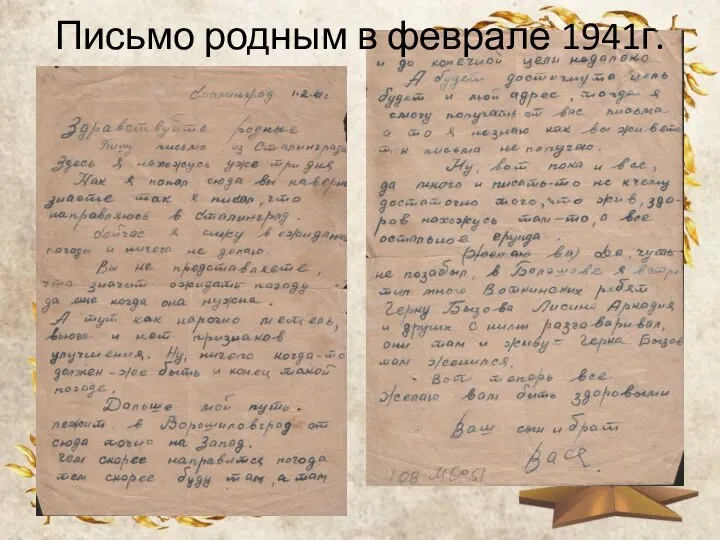 Письмо родным в феврале 1941г.
Сталинград 11.2.41г
Здравствуйте родные
Пишу письмо из Сталинграда
Здесь я нахожусь уже три дня
Как я попал сюда вы наверно
знаете так я писал, что
направляюсь в Сталинград.
Сейчас я сижу в ожидании
погоды и ничего не делаю.
Вы не представляете,
что значит ожидать погоду
да еще когда она нужна.
А тут как нарочно метель,
вьюга и нет признаков
улучшения. Ну, ничего когда-то
должен-же быть и конец такой
погоде.
Дальше мой путь
лежит в Ворошиловград от
сюда точно на Запад.
Чем скорее направится погода
тем скорее буду там, а там
и до конечной цели недалеко
А будет достигнута цель
будет и мой адрес, тогда я
смогу получать от вас письма
а то я незнаю как вы живете
т.к письма не получаю.
Ну, вот пока и все,
да много и писать-то не к чему
достаточно того, что жив, здо-
ров нахожусь там-то, а все
остальное ерунда.
(Желаю ва) Да, чуть
не позабыл, в Балашове я встре
тил много Воткинских ребят
Герку Бызова Лисина Аркадия
и других с ними разговаривал,
они там и живут Герка Бызов
там женился.
Вот теперь все
желаю вам быть здоровыми
Ваш сын и брат
Вася.